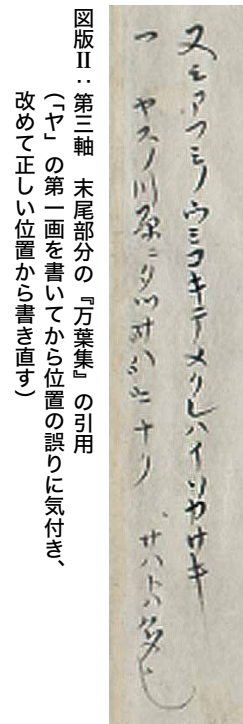 アフミノウミコキテメクレハイソカサキ
ヤスノ川原ニ ナリ サハトハ
図版Ⅱ：第三軸　末尾部分の『万葉集』の引用
（「ヤ」の第一画を書いてから位置の誤りに気付き、
改めて正しい位置から書き直す）